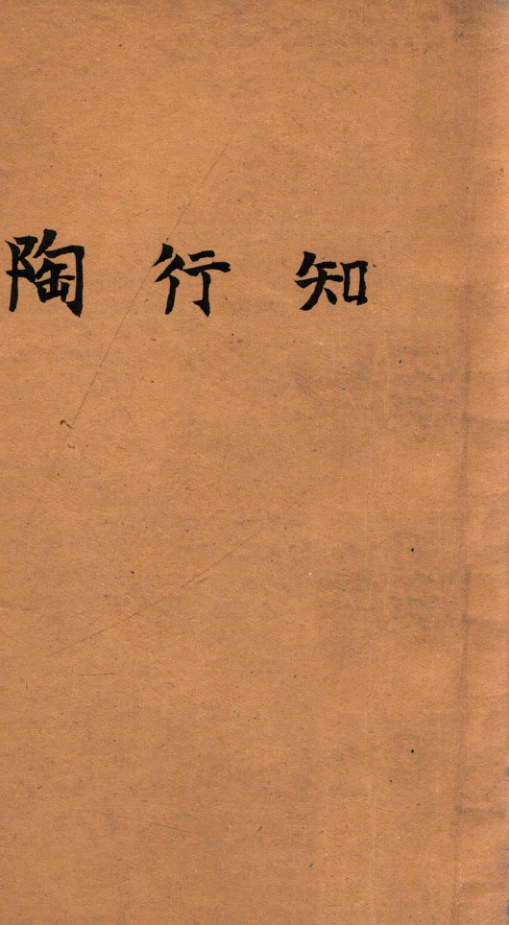 陶行知